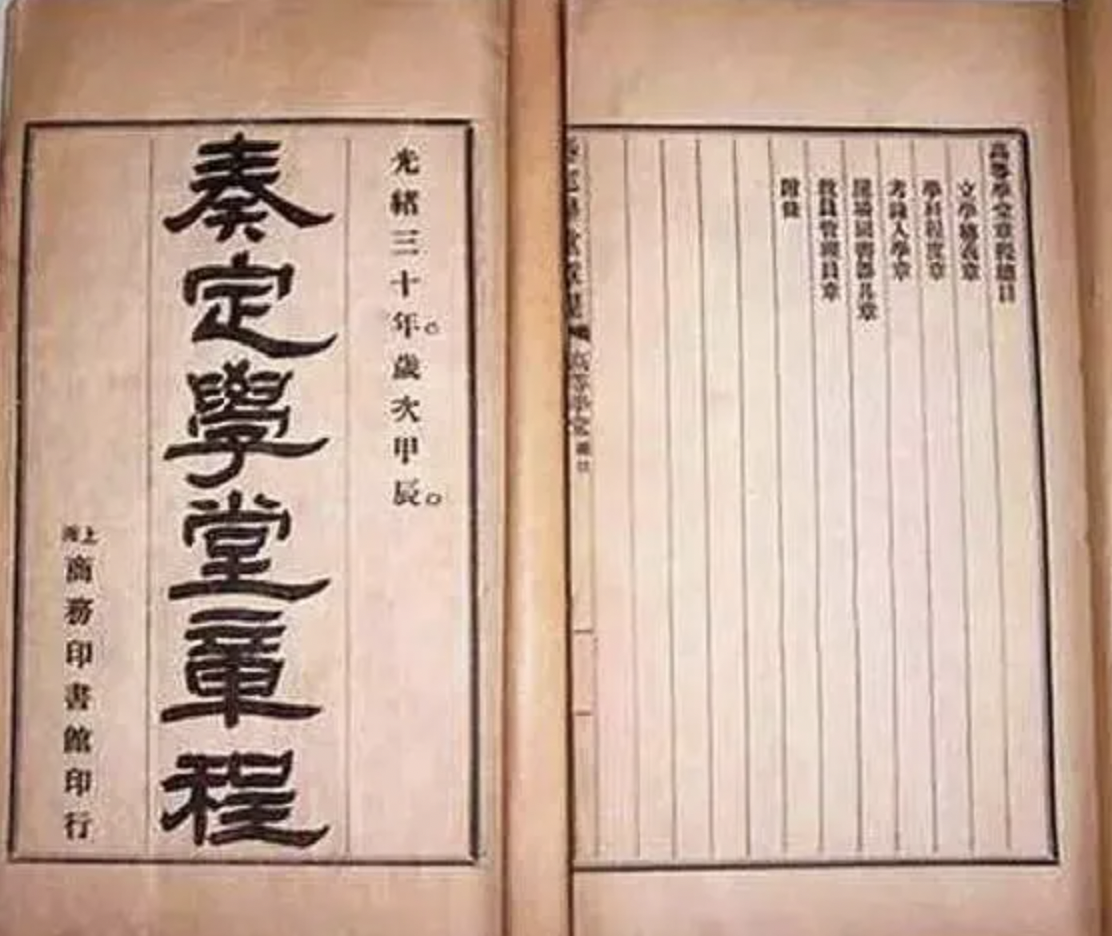 光緒三十年。歲次甲辰。
奏定學堂章程
上海商務印書館印行
高等學堂章程總目
立學總義章
學科程度章
考錄入學章
屋場圖書器具章
教員管理員章
附條
高等學堂